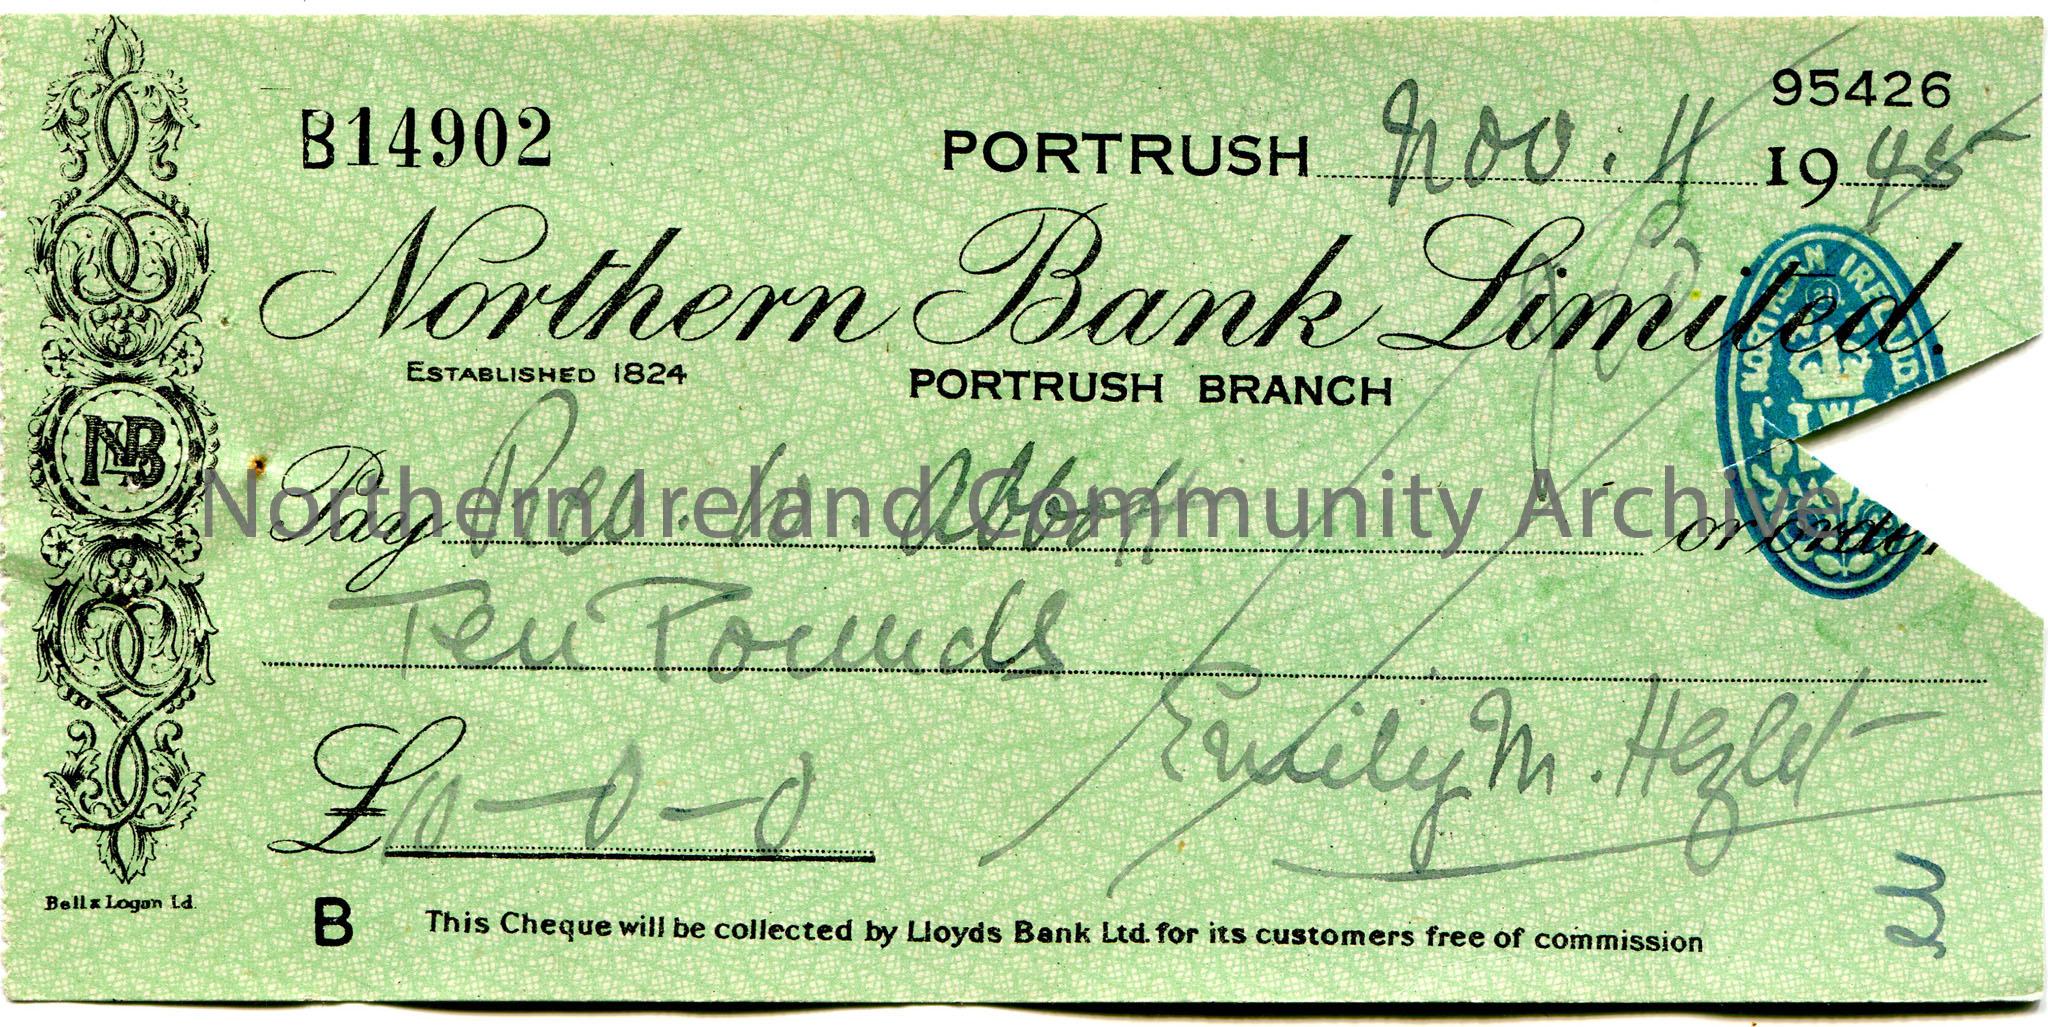 95426
B14902
PORTRUSH Nov. 11 1945
Northern Bank Limited.
ESTABLISHED 1824
PORTRUSH BRANCH
NORTHERN IRELAND
NLB
Pay Rev. W. Abbott or order
Northern Ireland Community Archive
Ten Pounds
Emily M. Hezlet
£10-0-0
Bell & Logan Ld.
B This Cheque will be collected by Lloyds Bank Ltd. for its customers free of commission